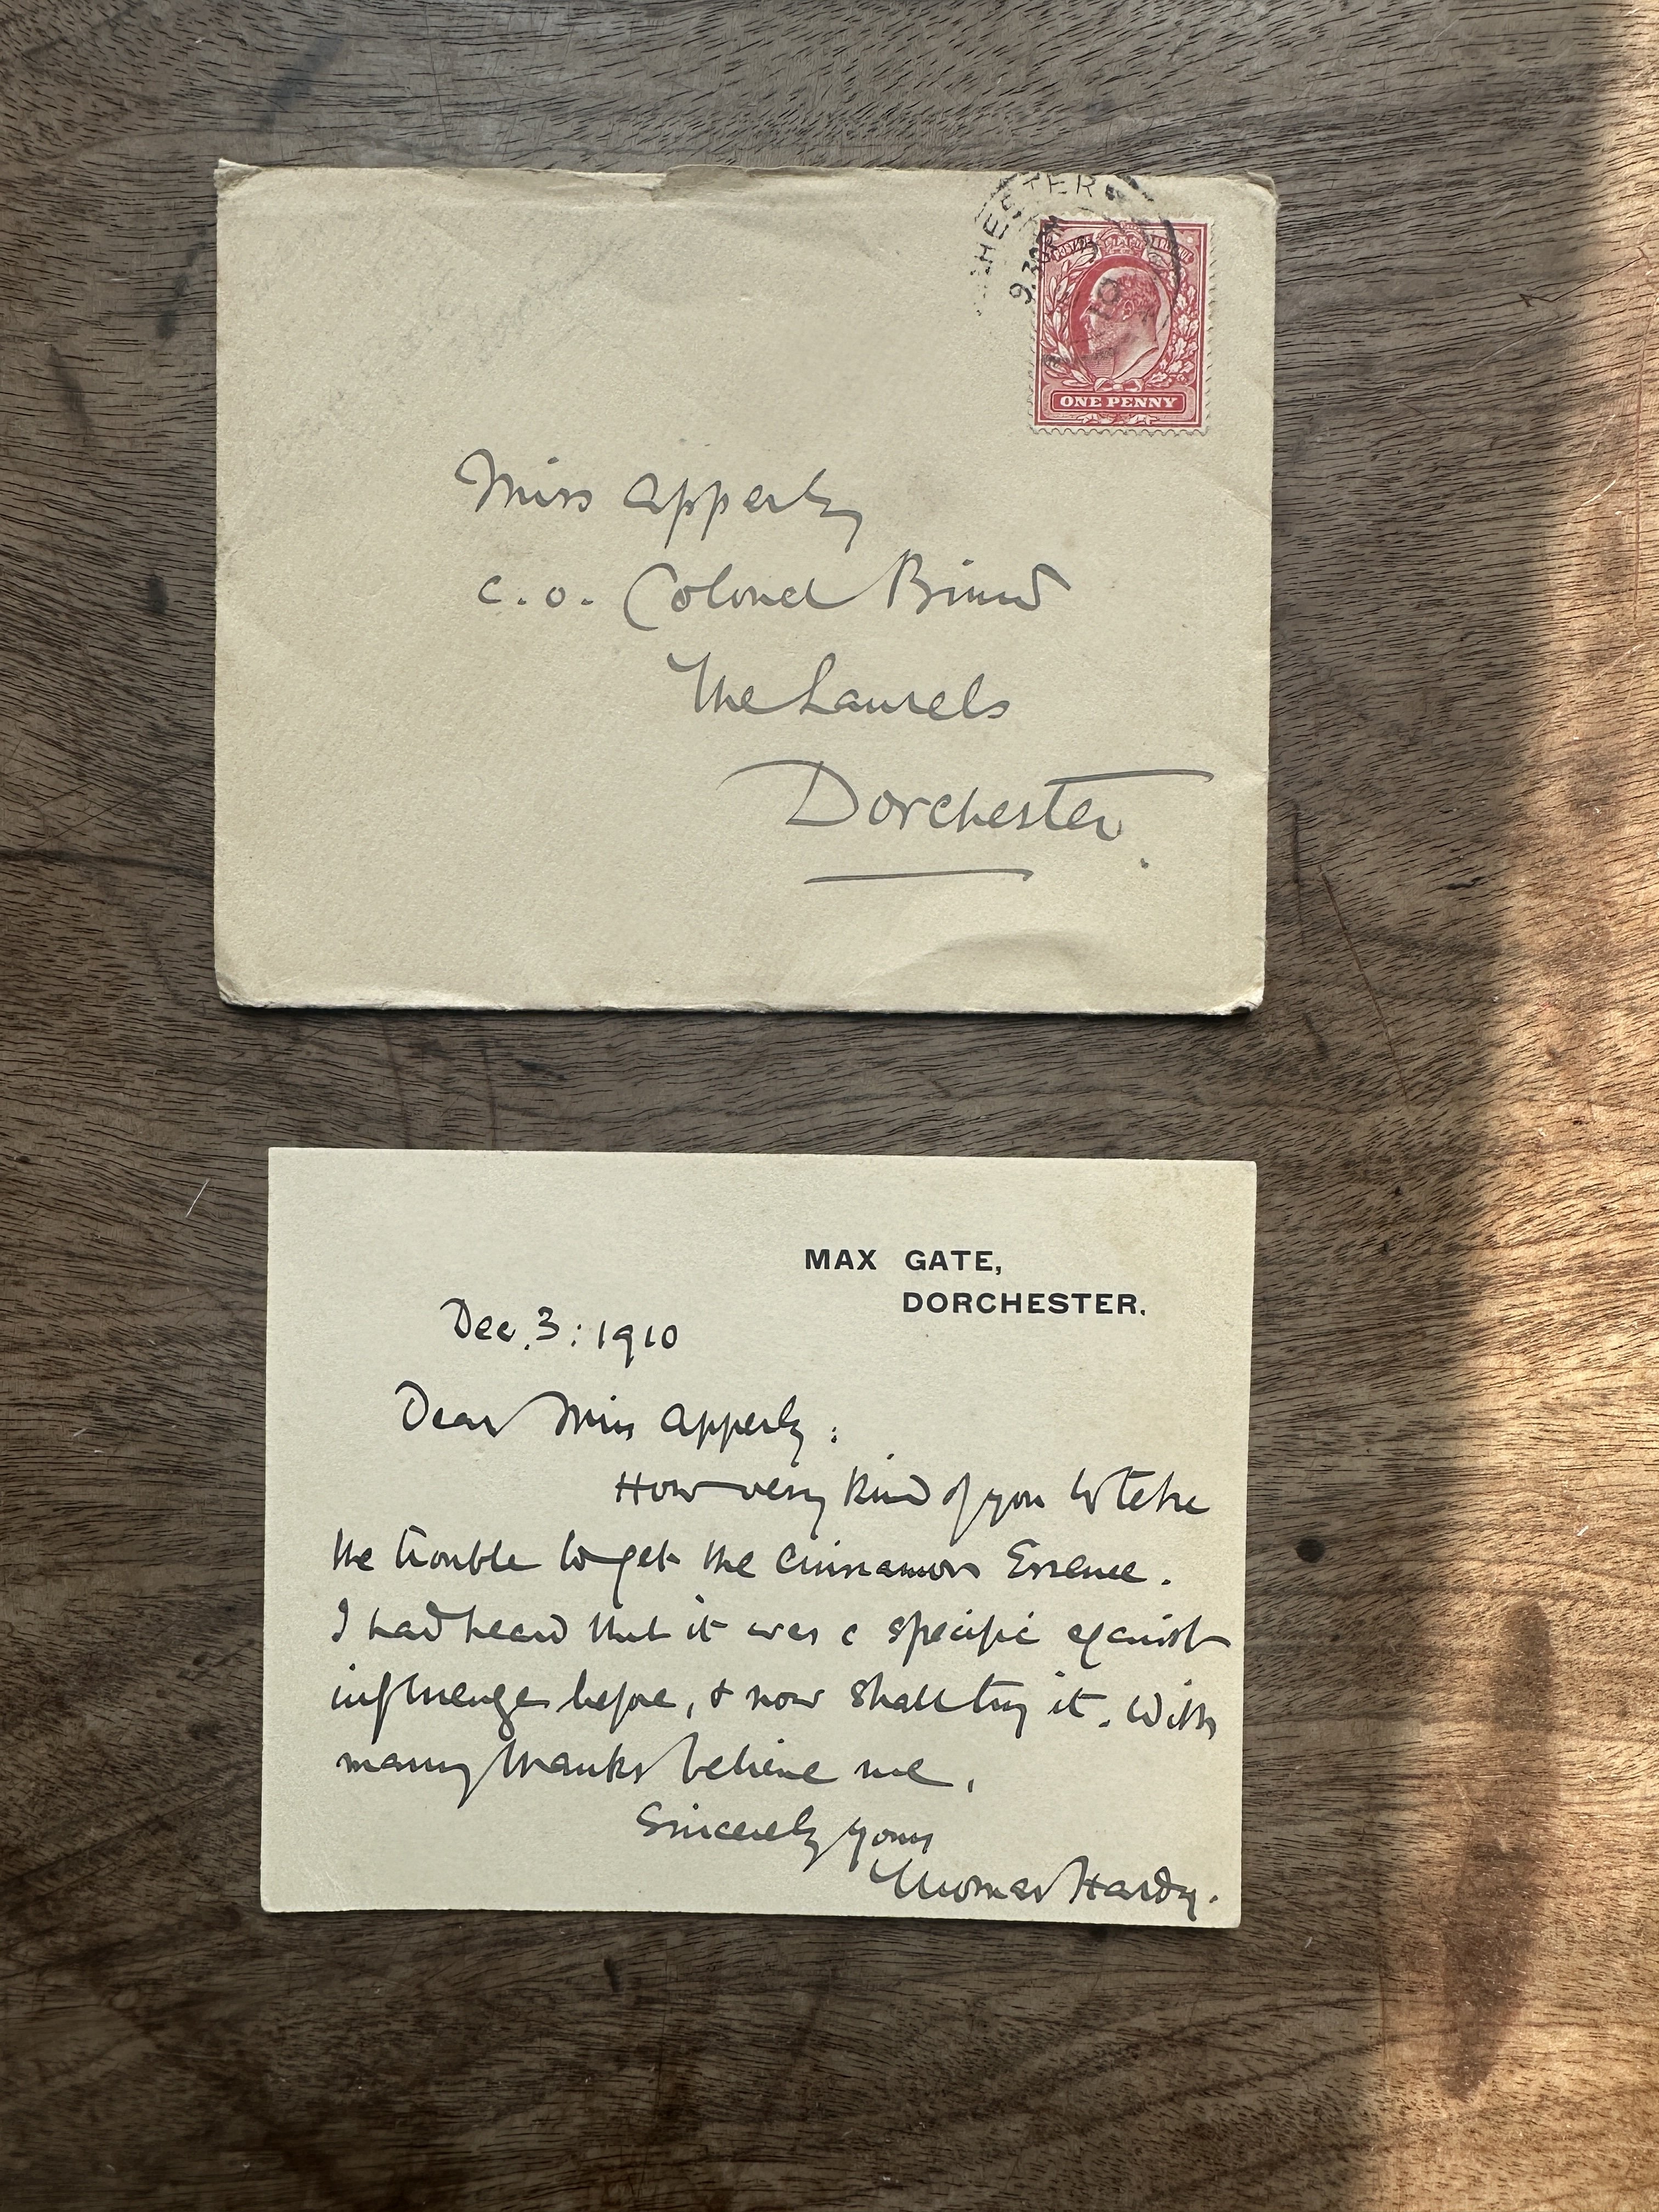 CHESTER
9.30PM
10
ONE PENNY
Miss Apperly
c.o. Colonel
The Laurels
Dorchester.
MAX GATE,
DORCHESTER.
Dec. 3: 1910
Dear Miss Apperly:
How very kind of you to take
the trouble to get the Cinnamon Essence.
I had heard that it was a specific against
influenza before, & now shall try it. With
many thanks believe me,
Sincerely yours
Thomas Hardy.